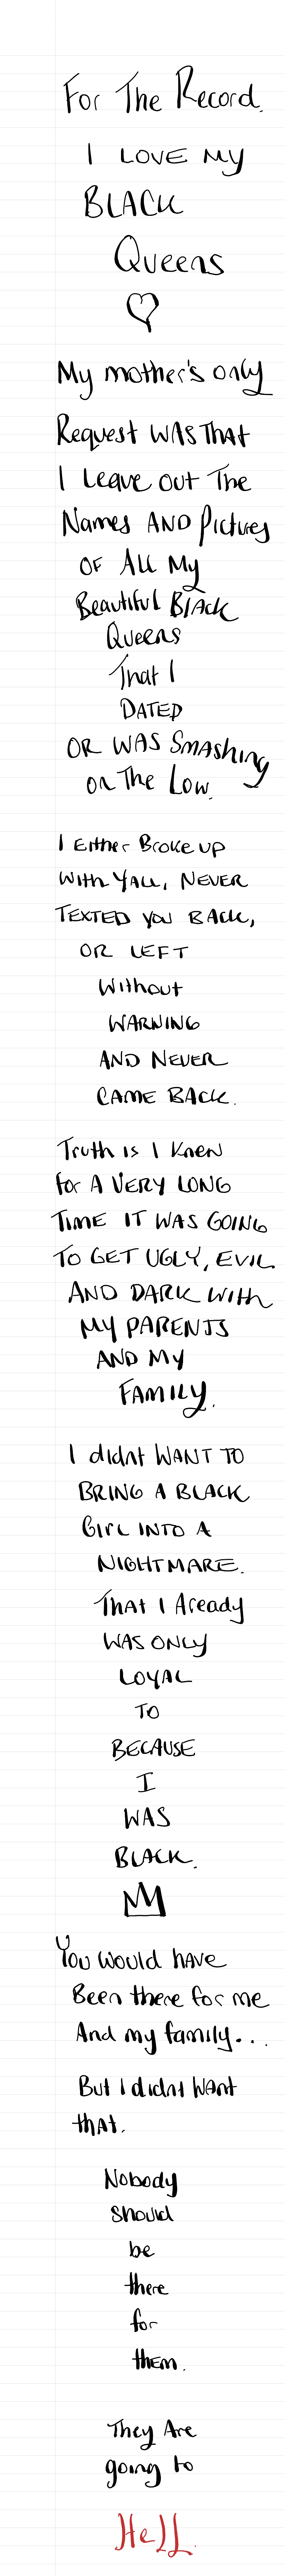 For The Record.
I LOVE My
BLACK
Queens
My mother's only
Request WAS THAT
I Leave out The
Names AND Pictures
OF All My
Beautiful Black
Queens
That I
DATED
OR WAS Smashing
on The Low.
I Either Broke up
With YALL, NEVER
TEXTED YOU BACK,
OR LEFT
Without
WARNING
AND NEVER
CAME BACK.
Truth is I Knew
for A VERY LONG
TIME IT WAS GOING
TO GET UGLY, EVIL
AND DARK With
MY PARENTS
AND MY
FAMILY.
I didnt WANT TO
BRING A BLACK
GIRL INTO A
NIGHTMARE.
THAT I Aready
WAS ONLY
LOYAL
TO
BECAUSE
I
WAS
BLACK.
You would have
Been there for me
And my family...
But I didnt Want
that.
Nobody
should
be
there
for
them.
They Are
going to
Hell.